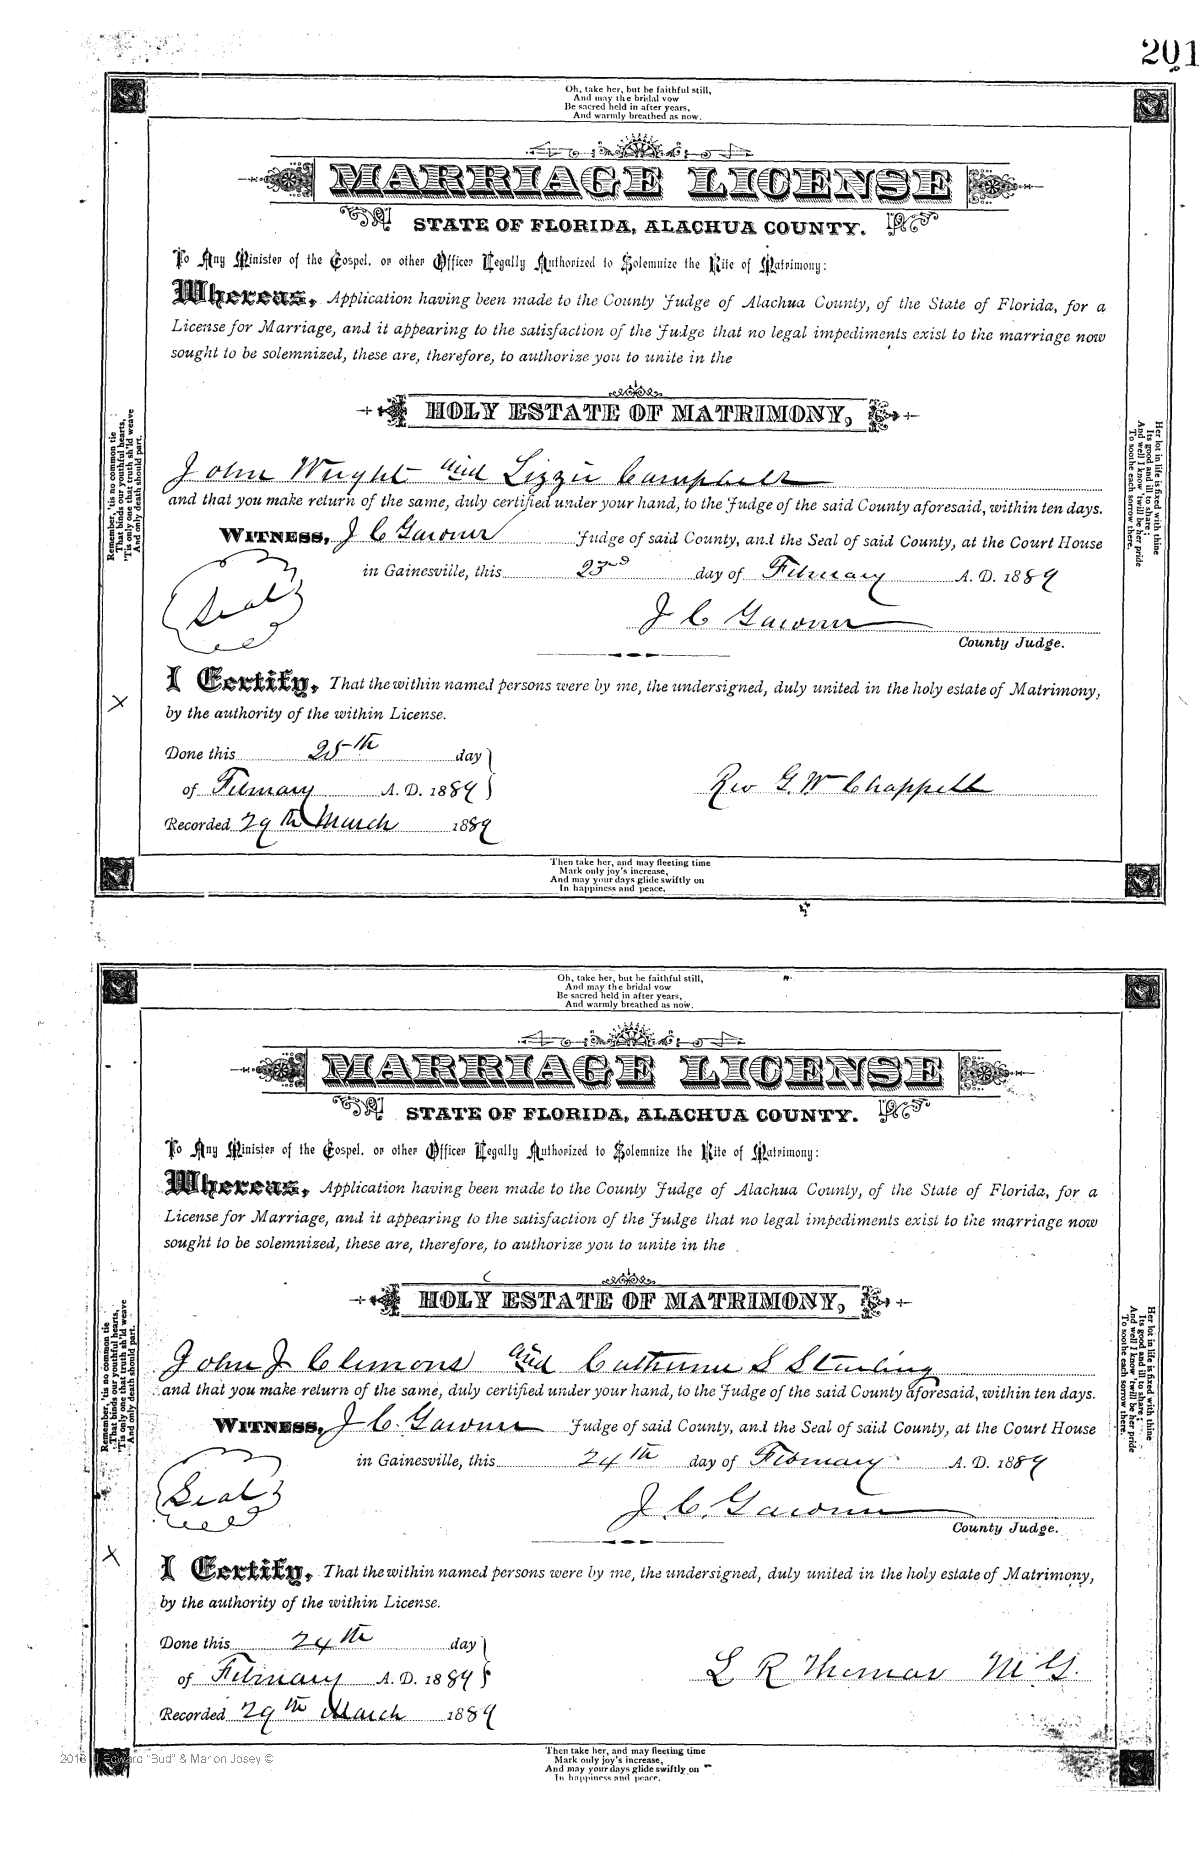 201
Oh, take her, but be faithful still,
And may the bridal vow
Be sacred held in after years,
And warmly breathed as now.
MARRIAGE LICENSE
STATE OF FLORIDA, ALACHUA COUNTY.
To Any Minister of the Gospel, or other Officer Legally Authorized to Solemnize the Rite of Matrimony:
Whereas, Application having been made to the County Judge of Alachua County, of the State of Florida, for a
License for Marriage, and it appearing to the satisfaction of the Judge that no legal impediments exist to the marriage now
sought to be solemnized, these are, therefore, to authorize you to unite in the
HOLY ESTATE OF MATRIMONY,
Remember, 'tis no common tie
That binds our youthful hearts,
'Tis only one that truth sh'ld weave
And only death should part.
Her lot in life is fixed with thine
Its good and ill to share;
And well I know 'twill be her pride
To soothe each sorrow there.
John Wright and Lizzie Campbell
and that you make return of the same, duly certified under your hand, to the Judge of the said County aforesaid, within ten days.
WITNESS, J C Gardner Judge of said County, and the Seal of said County, at the Court House
in Gainesville, this 23rd day of February A. D. 1889
Seal
J C Gardner
County Judge.
I Certify, That the within named persons were by me, the undersigned, duly united in the holy estate of Matrimony,
X
by the authority of the within License.
Done this 25th day
of February A. D. 1889
Rev G. W Chappell
Recorded 29th March 1889
Then take her, and may fleeting time
Mark only joy's increase,
And may your days glide swiftly on
In happiness and peace.
Oh, take her, but be faithful still,
And may the bridal vow
Be sacred held in after years,
And warmly breathed as now.
MARRIAGE LICENSE
STATE OF FLORIDA, ALACHUA COUNTY.
To Any Minister of the Gospel, or other Officer Legally Authorized to Solemnize the Rite of Matrimony:
Whereas, Application having been made to the County Judge of Alachua County, of the State of Florida, for a
License for Marriage, and it appearing to the satisfaction of the Judge that no legal impediments exist to the marriage now
sought to be solemnized, these are, therefore, to authorize you to unite in the
HOLY ESTATE OF MATRIMONY,
Remember, 'tis no common tie
That binds our youthful hearts,
'Tis only one that truth sh'ld weave
And only death should part.
Her lot in life is fixed with thine
Its good and ill to share;
And well I know 'twill be her pride
To soothe each sorrow there.
John J Clemons and Catherine S Sterling
and that you make return of the same, duly certified under your hand, to the Judge of the said County aforesaid, within ten days.
WITNESS, J. C. Gardner Judge of said County, and the Seal of said County, at the Court House
in Gainesville, this 24th day of February A. D. 1889
Seal
J. C. Gardner
County Judge.
X
I Certify, That the within named persons were by me, the undersigned, duly united in the holy estate of Matrimony,
by the authority of the within License.
Done this 24th day
of February A. D. 1889
L R Thomas M G.
Recorded 29th March 1889
Then take her, and may fleeting time
Mark only joy's increase,
And may your days glide swiftly on
In happiness and peace.
J Edward "Bud" & Marion Josey ©